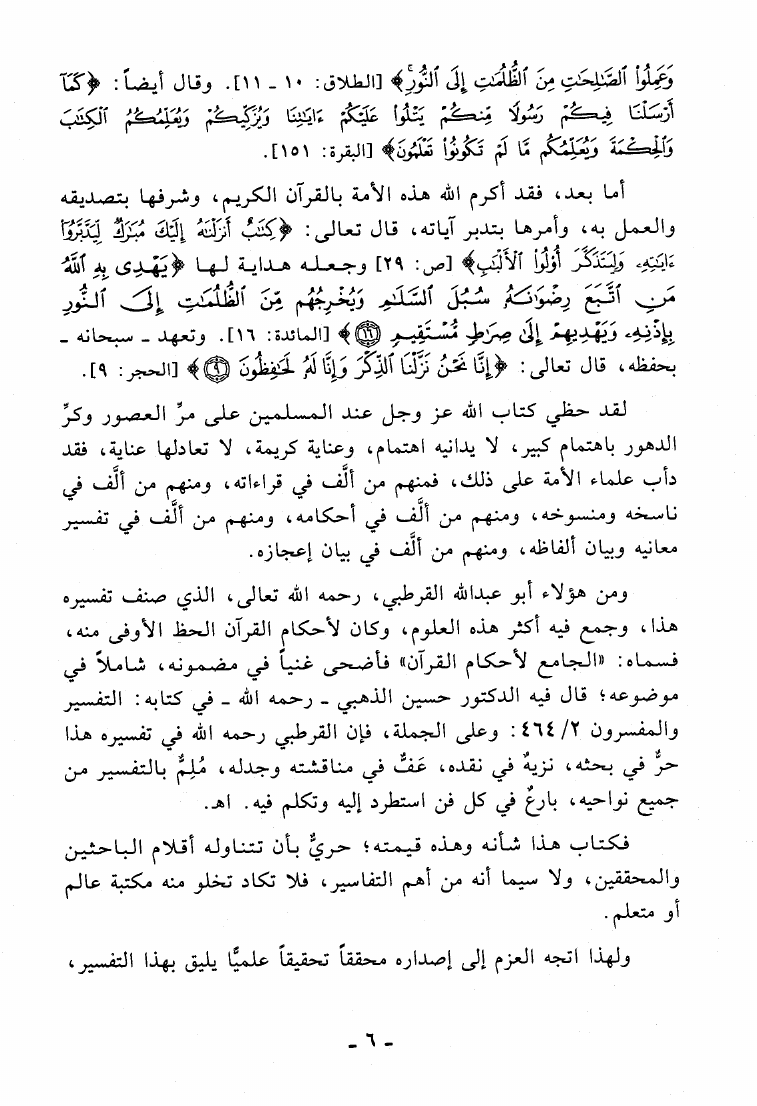 وَعَمِلُوا۟ ٱلصَّـٰلِحَـٰتِ مِنَ ٱلظُّلُمَـٰتِ إِلَى ٱلنُّورِۚ﴾ [الطلاق: ١٠ ـ ١١]. وقال أيضاً: ﴿كَمَآ
أَرْسَلْنَا فِيكُمْ رَسُولًا مِّنكُمْ يَتْلُوا۟ عَلَيْكُمْ ءَايَـٰتِنَا وَيُزَكِّيكُمْ وَيُعَلِّمُكُمُ ٱلْكِتَـٰبَ
وَٱلْحِكْمَةَ وَيُعَلِّمُكُم مَّا لَمْ تَكُونُوا۟ تَعْلَمُونَ﴾ [البقرة: ١٥١].
أما بعد، فقد أكرم الله هذه الأمة بالقرآن الكريم، وشرفها بتصديقه
والعمل به، وأمرها بتدبر آياته، قال تعالى: ﴿كِتَـٰبٌ أَنزَلْنَـٰهُ إِلَيْكَ مُبَـٰرَكٌ لِّيَدَّبَّرُوٓا۟
ءَايَـٰتِهِۦ وَلِيَتَذَكَّرَ أُو۟لُوا۟ ٱلْأَلْبَـٰبِ﴾ [ص: ٢٩] وجعله هداية لها ﴿يَهْدِى بِهِ ٱللَّهُ
مَنِ ٱتَّبَعَ رِضْوَٰنَهُۥ سُبُلَ ٱلسَّلَـٰمِ وَيُخْرِجُهُم مِّنَ ٱلظُّلُمَـٰتِ إِلَى ٱلنُّورِ
بِإِذْنِهِۦ وَيَهْدِيهِمْ إِلَىٰ صِرَٰطٍ مُّسْتَقِيمٍ ١٦﴾ [المائدة: ١٦]. وتعهد ـ سبحانه ـ
بحفظه، قال تعالى: ﴿إِنَّا نَحْنُ نَزَّلْنَا ٱلذِّكْرَ وَإِنَّا لَهُۥ لَحَـٰفِظُونَ ٩﴾ [الحجر: ٩].
لقد حظي كتاب الله عز وجل عند المسلمين على مرِّ العصور وكرِّ
الدهور باهتمام كبير، لا يدانيه اهتمام، وعناية كريمة، لا تعادلها عناية، فقد
دأب علماء الأمة على ذلك، فمنهم من ألَّف في قراءاته، ومنهم من ألَّف في
ناسخه ومنسوخه، ومنهم من ألَّف في أحكامه، ومنهم من ألَّف في تفسير
معانيه وبيان ألفاظه، ومنهم من ألَّف في بيان إعجازه.
ومن هؤلاء أبو عبدالله القرطبي، رحمه الله تعالى، الذي صنف تفسيره
هذا، وجمع فيه أكثر هذه العلوم، وكان لأحكام القرآن الحظ الأوفى منه،
فسماه: «الجامع لأحكام القرآن» فأضحى غنياً في مضمونه، شاملاً في
موضوعه؛ قال فيه الدكتور حسين الذهبي ـ رحمه الله ـ في كتابه: التفسير
والمفسرون ٢/ ٤٦٤: وعلى الجملة، فإن القرطبي رحمه الله في تفسيره هذا
حرٌّ في بحثه، نزيهٌ في نقده، عَفٌّ في مناقشته وجدله، مُلِمٌّ بالتفسير من
جميع نواحيه، بارعٌ في كل فن استطرد إليه وتكلم فيه. اهـ.
فكتاب هذا شأنه وهذه قيمته؛ حريٌّ بأن تتناوله أقلام الباحثين
والمحققين، ولا سيما أنه من أهم التفاسير، فلا تكاد تخلو منه مكتبة عالم
أو متعلم.
ولهذا اتجه العزم إلى إصداره محققاً تحقيقاً علميًّا يليق بهذا التفسير،
ـ ٦ ـ